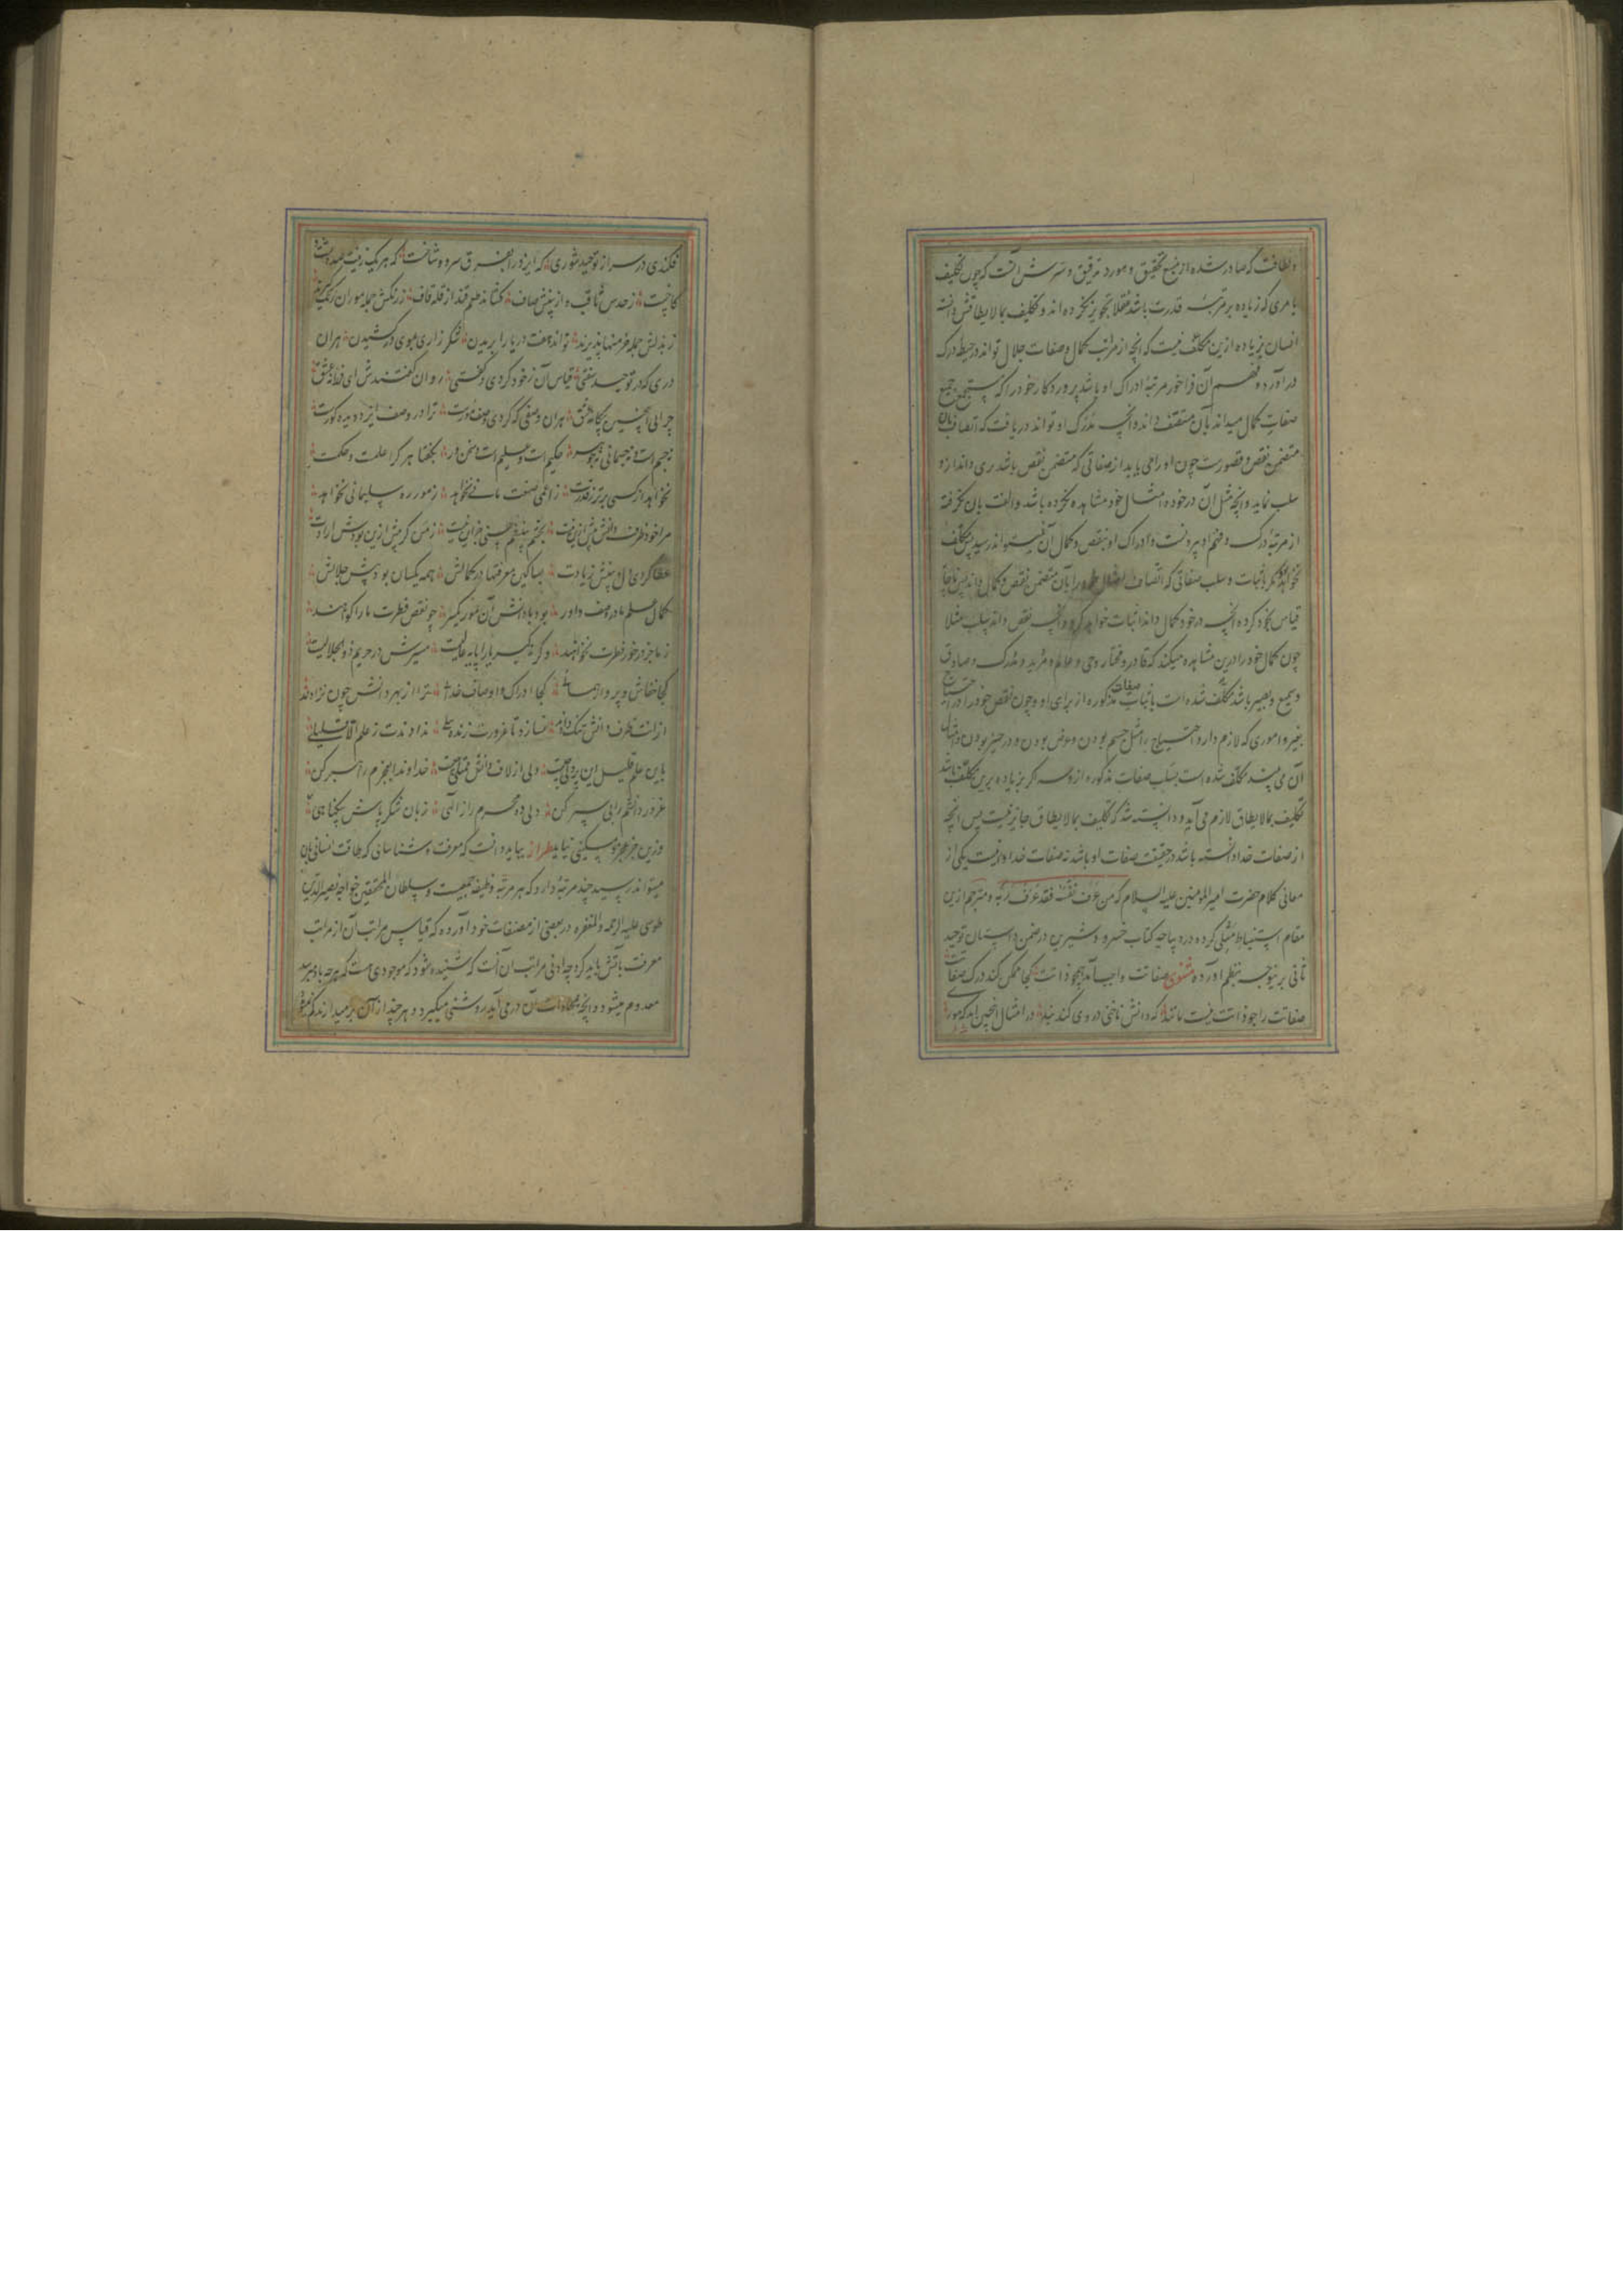 و لطافت که صادر شده از منبع تحقیق و مورد تدقیق و سرش آنست که چون تکلیف
بامری که زیاده بر مرتبهٔ قدرت باشد عقلا تجویز نکرده‌اند و تکلیف بمالایطاقش دانسته
انسان بزیاده ازین مکلف نیست که آنچه از مراتب کمال و صفات جلال تواند در حیطهٔ درک
درآورد و فهم آن فراخور مرتبهٔ ادراک او باشد پروردگار خود را که مستجمع جمیع
صفات کمال میداند بآن متصف داند و آنچه مدرک او تواند دریافت که اتصاف بآن
متضمن نقص و قصورست چون او را می باید از صفاتی که متضمن نقص باشد بری داند ازو
سلب نماید و آنچه مثل آن در خود و امثال خود مشاهده نکرده باشد و الفت بآن نگرفته
از مرتبهٔ درک و فهم او بیرونست و ادراک او بنقص و کمال آن نمیتواند رسید پس مکلف
نخواهد بود مگر باثبات و سلب صفاتی که اتصاف امثال خود را بآن متضمن نقص و کمال داند پس ناچار
قیاس بخود کرده آنچه در خود کمال داند اثبات خواهد کرد و آنچه نقص داند سلب مثلا
چون کمال خود را درین مشاهده میکند که قادر و مختار و حی و عالم و مرید و مدرک و صادق
و سمیع و بصیر باشد مکلف شده است باثبات صفات مذکوره از برای او و چون نقص خود را در احتیاج
بغیر و اموری که لازم دارد احتیاج را مثل جسم بودن و عرض بودن و در حیز بودن و امثال
آن می بیند مکلف شده است بسلب صفات مذکوره ازو چه اگر بزیاده برین مکلف باشد
تکلیف بمالایطاق لازم می آید و دانسته شد که تکلیف بمالایطاق جایز نیست پس آنچه
از صفات خدا دانسته باشد در حقیقت صفات او باشد نه صفات خدا و اینست یکی از
معانی کلام حضرت امیر المومنین علیه السلام که من عرف نفسه فقد عرف ربه و مترجم ازین
مقام استنباط مثلی کرده در دیباچه کتاب خسرو و شیرین در ضمن داستان توحید
ثانی برینوجه بنظم آورده مثنوی صفاتت واجب آمد همچو ذاتت کجا ممکن کند درک صفاتت
صفاتت را چو ذاتت نیست مانند که دانش ناخنی در وی کند بند در امثال اینچنین آمد که مور
فکندی در سر از توحید شوری که ایزد را بفرق سر دو شاخست که هر یک زینت صد
کاخست ز حدس ثاقب و از بینش صاف کشاند طعم قند از قله قاف ز رنگش جمله موران رنگ گیرند
ز بذلش جمله خرمنها پذیرند تواند هفت دریا را بریدن شکر زاری ببوی در کشیدن بر آن
دری که در توحید سفتی قیاس آن ز خود کردی و گفتی روان گفتندش ای فرزانه عشق
چرایی اینچنین بیگانه عشق بر آن وصفی که کردی وصف مورست ترا در وصف ایزد دیده کورست
نه جسم است و نه جسمانی نه جوهر حکیم است و علیم است و سخن ور بگفتا هر کرا علمست و حکمت
نخواهد از کسی برتر ز قدرت ز اعمی صنعت مانی نخواهد ز مور ره سلیمانی نخواهد
مرا خود ظرف دانش بیش ازین نیست
عطا کردی دل بینش زیادت بسا کین معرفتها در کمالش همه یکسان بود پیش جلالش
کمال علم ما در وصف داور بود با دانش آن مور یکسر چو نقص فطرت ما را گواهند
ز ما جز در خور فطرت نخواهند میسرش در حریم ذوالجلالیست
کجا خفاش و پرواز همایی کجا ادراک و اوصاف خدایی ترا از بهر دانش چون نزادند
از آنت ظرف دانش تنگ دادند ندادندت ز علم الا قلیلی
باین علم قلیل این پردلی چیست دلی از لاف دانش ممتلی چیست خداوندا بعجزم راهبر کن
غرور دانشم را بی سپر کن دلی ده محرم راز الهی زبان شکر پاش بیگناهی
وزین جز عجز و مسکینی نیاید طراز بباید دانست که معرفت و شناسایی که طاقت انسانی بآن
میتواند رسید چند مرتبه دارد که هر مرتبه وظیفه جمعیست و سلطان المحققین خواجه نصیر الدین
طوسی علیه الرحمه و المغفره در بعضی از مصنفات خود آورده که قیاس مراتب آن از مراتب
معرفت بآتش باید کرد چه ادنی مراتب آن آنست که شنیده شود که موجودی هست که هر چه باو میرسد
معدوم میشود و آنچه بمحاذات آن در می آید روشنی میگیرد و هر چند از آن بر میدارند کم نمیشود